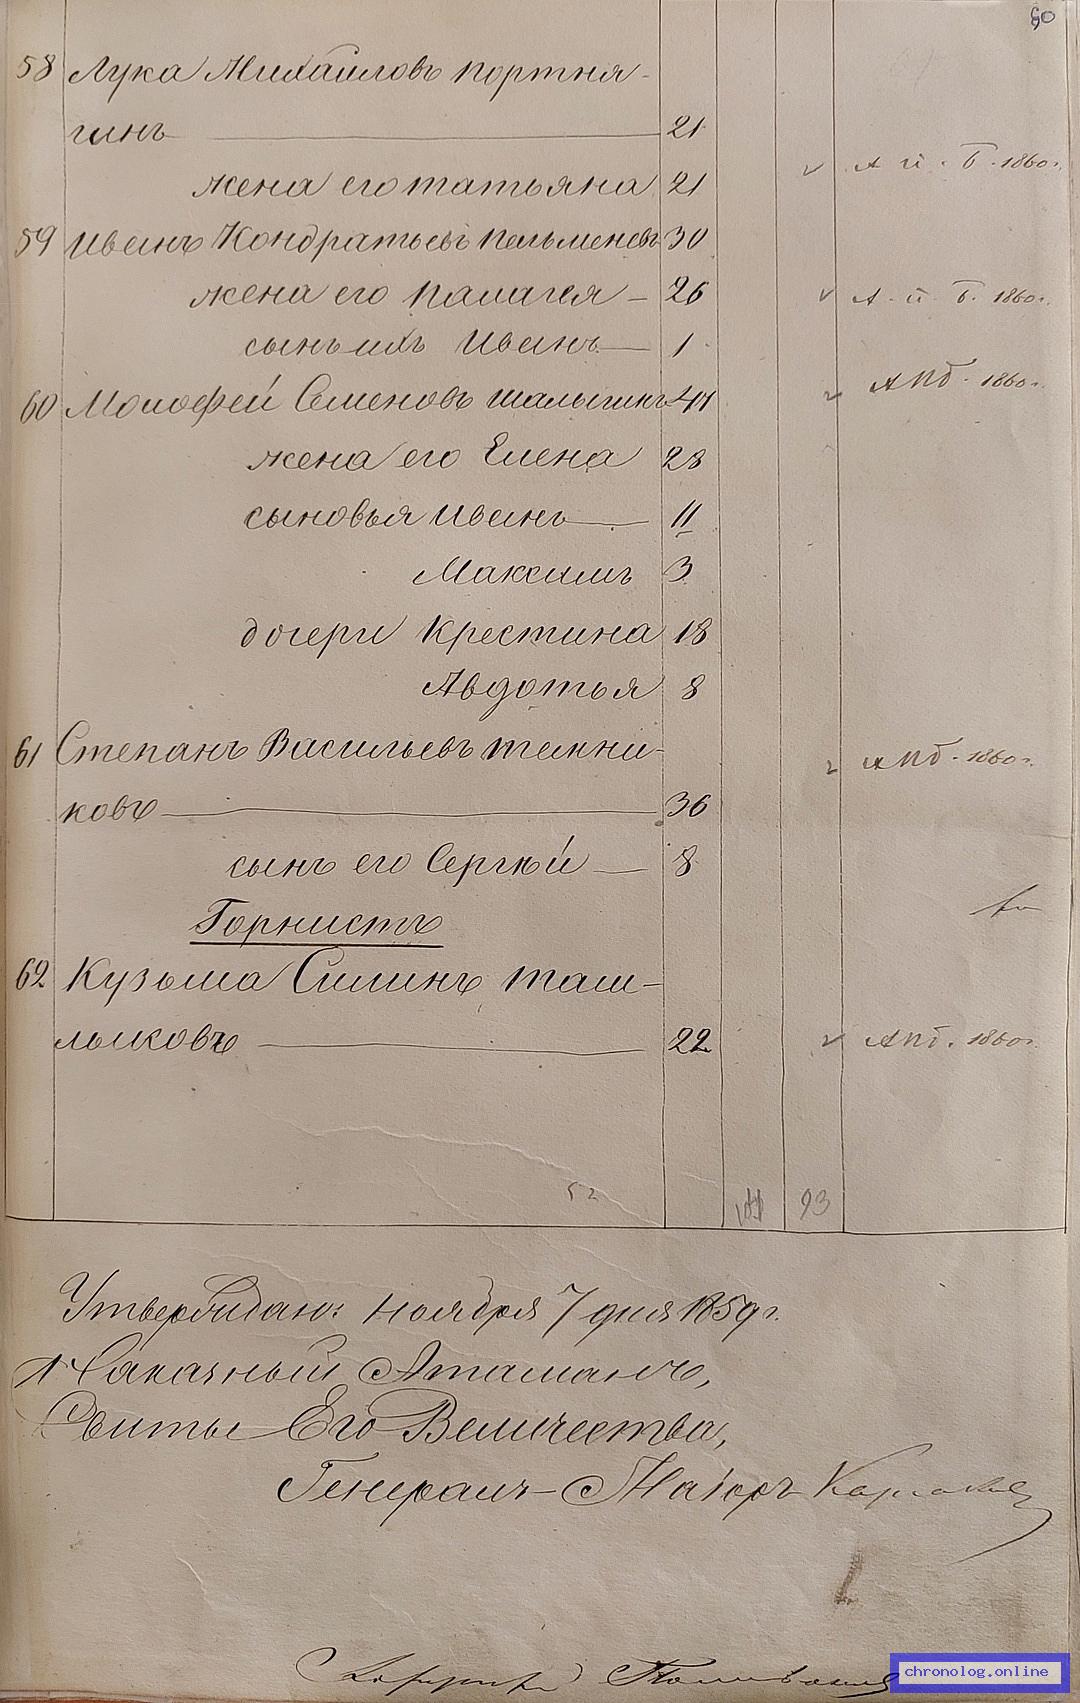 60
58 Лука Михайловъ Портня-
гинъ 21
жена его Татьяна 21 А п. Б. 1860 г.
59 Иванъ Кондратьевъ Пельменевъ 30
жена его Палагея 26 А. п. Б. 1860 г.
сынъ ихъ Иванъ 1
60 Семеновъ Шалыгинъ АПБ. 1860 г.
жена его Елена 23
сыновья Иванъ 11
Максимъ 3
дочери Крестина 18
Авдотья 8
61 Степанъ Васильевъ Темни- АПБ. 1860 г.
ковъ 36
сынъ его Сергѣй 8
Горнистъ
62 Кузьма Силинъ Таш-
лыковъ 22 АПБ. 1860 г.
52 93
Утверждаю: Ноября 7 дня 1859 г.
Наказный Атаманъ,
Свиты Его Величества,
Генералъ-Маіоръ
chronolog.online